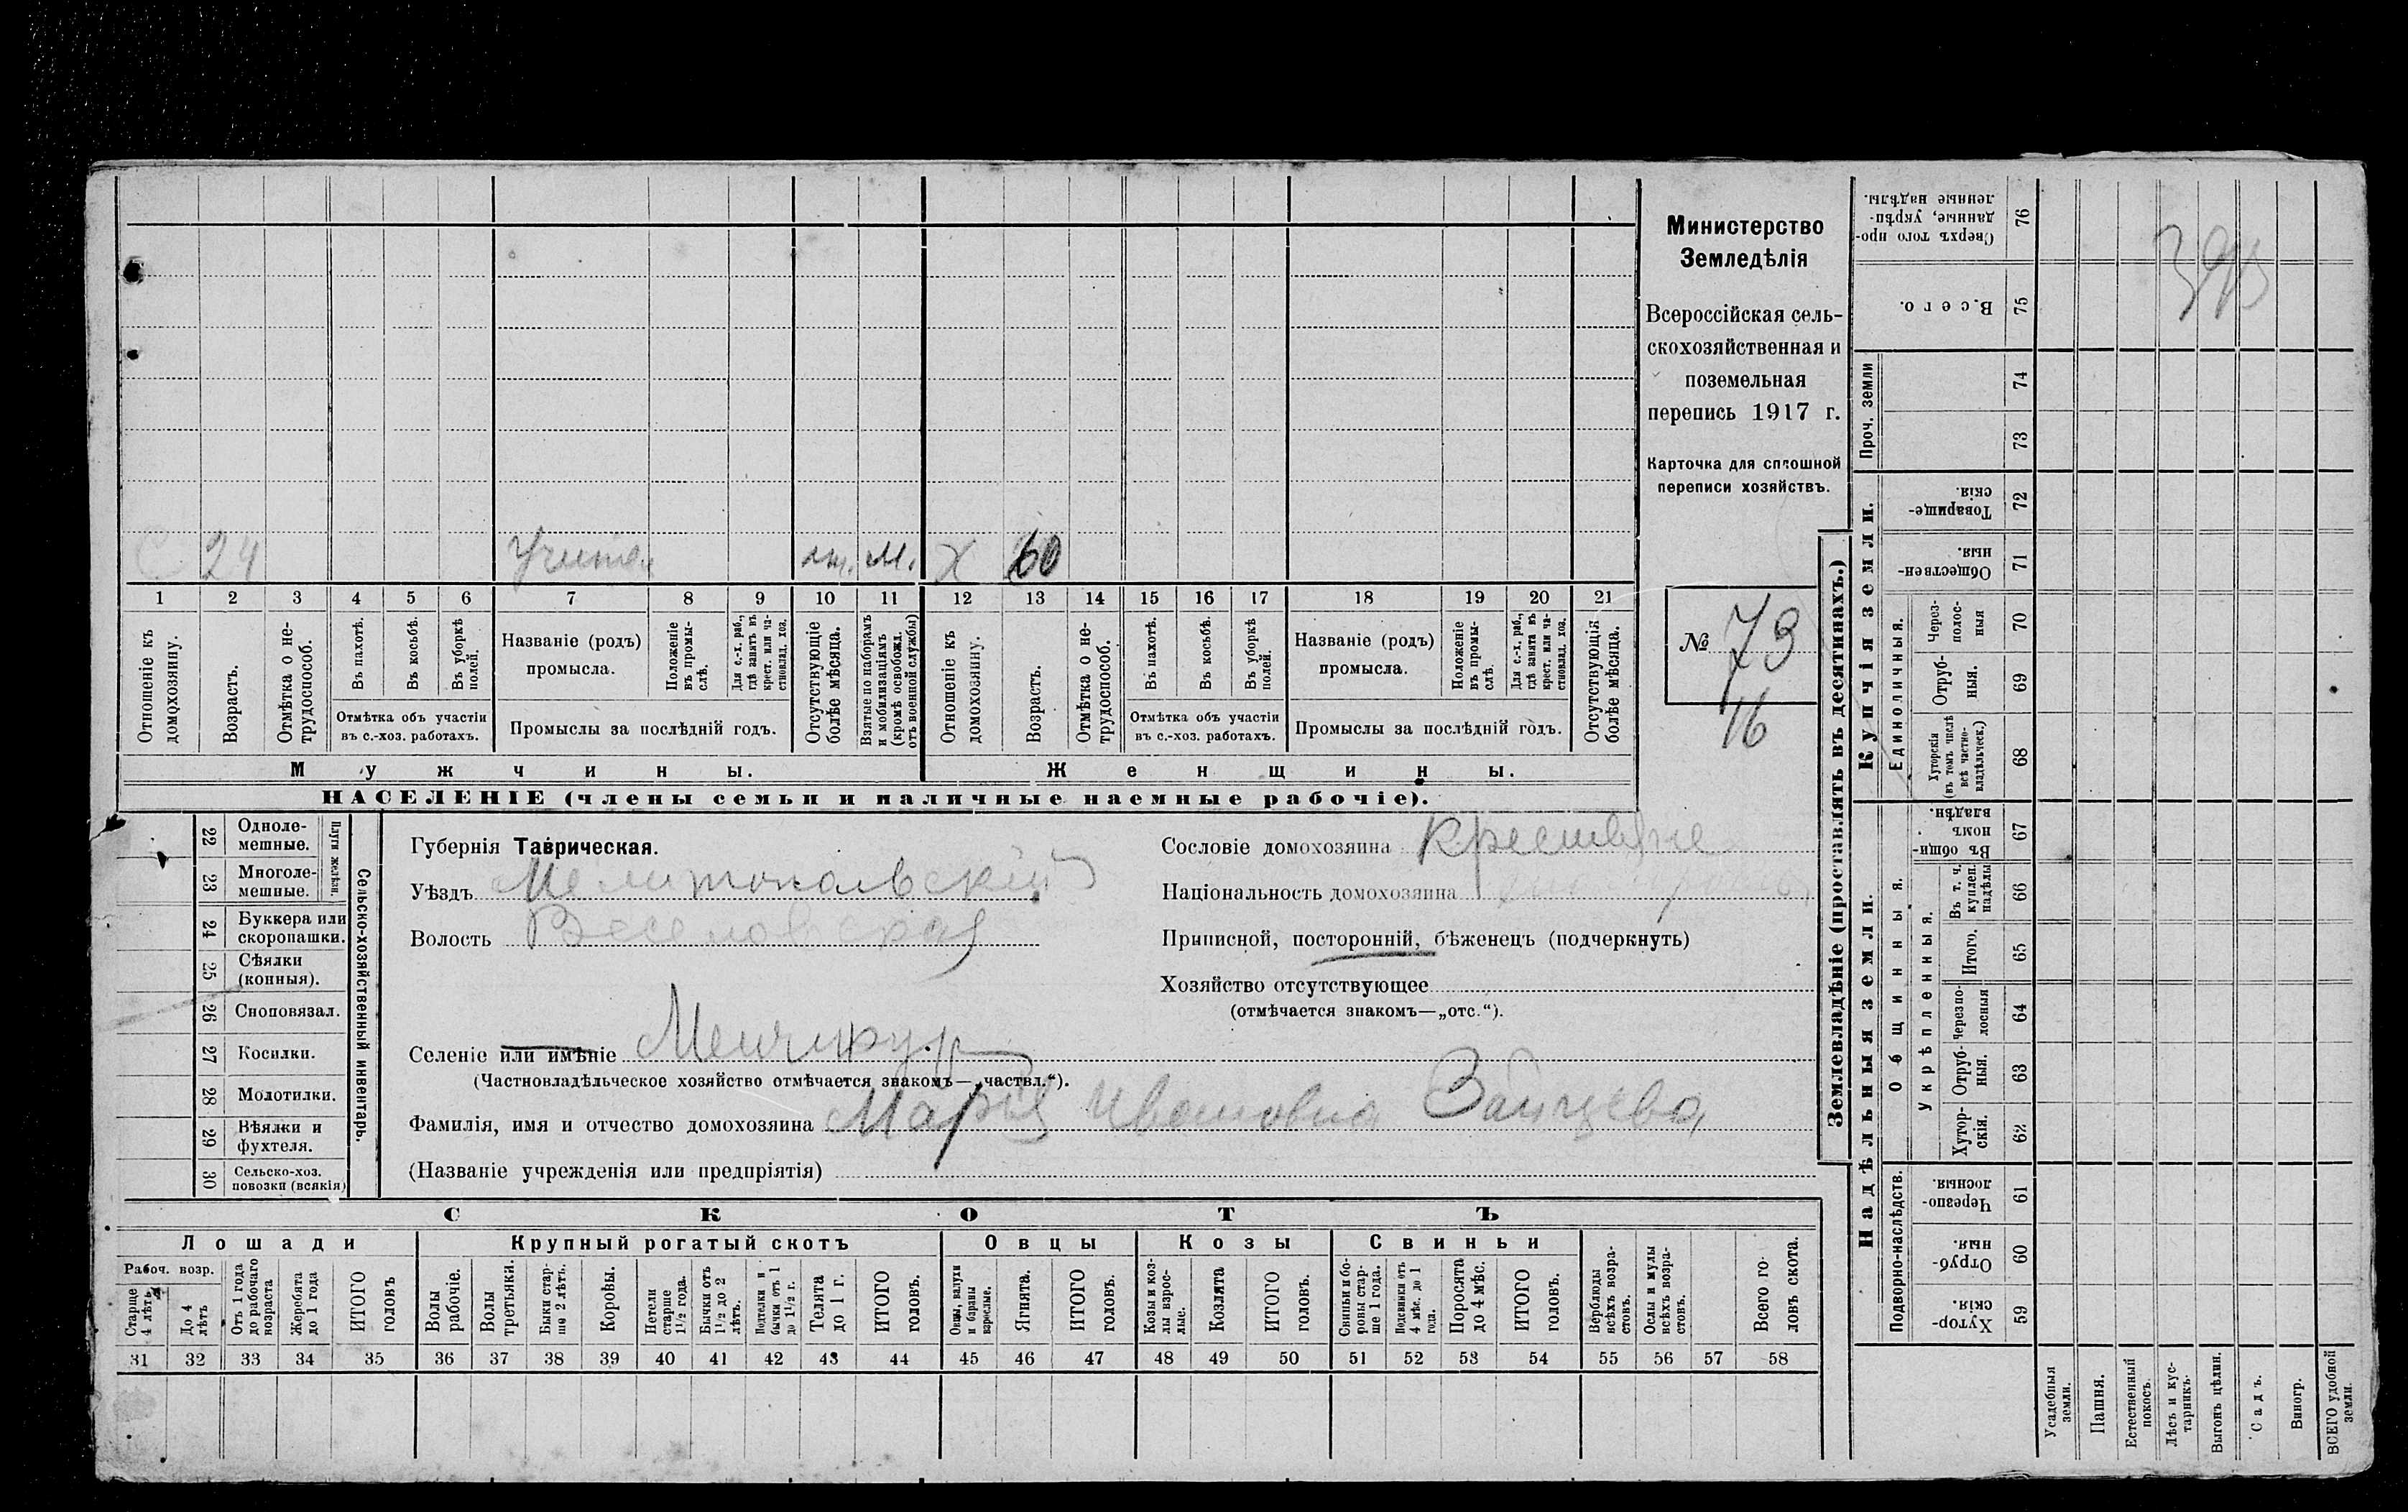 С 24 Учител от. М. Х 60
1 2 3 4 5 6 7 8 9 10 11 12 13 14 15 16 17 18 19 20 21
Отношеніе къ домохозяину.
Возрастъ.
Отмѣтка о не-трудоспособ.
Въ пахотѣ.
Въ косьбѣ.
Въ уборкѣ полей.
Отмѣтка объ участіи
въ с.-хоз. работахъ.
Названіе (родъ)
промысла.
Положеніе въ промы-слѣ.
Для с.-х. раб., гдѣ занятъ въ крест. или ча-стновлад. хоз.
Промыслы за послѣдній годъ.
Отсутствующіе болѣе мѣсяца.
Взятые по наборамъ и мобилизаціямъ (кромѣ освобожд. отъ военной службы)
Отношеніе къ домохозяину.
Возрастъ.
Отмѣтка о не-трудоспособ.
Въ пахотѣ.
Въ косьбѣ.
Въ уборкѣ полей.
Отмѣтка объ участіи
въ с.-хоз. работахъ.
Названіе (родъ)
промысла.
Положеніе въ промы-слѣ.
Для с.-х. раб., гдѣ занята въ крест. или ча-стновлад. хоз.
Промыслы за послѣдній годъ.
Отсутствующія болѣе мѣсяца.
Мужчины. Женщины.
НАСЕЛЕНІЕ (члены семьи и наличные наемные рабочіе).
Министерство
Земледѣлія
Всероссійская сель-
скохозяйственная и
поземельная
перепись 1917 г.
Карточка для сплошной
переписи хозяйствъ.
№ 73
16
22 Одноле-мешные.
23 Многоле-мешные.
Плуги желѣзн.
24 Буккера или скоропашки.
25 Сѣялки (конныя).
26 Сноповязал.
27 Косилки.
28 Молотилки.
29 Вѣялки и фухтеля.
30 Сельско-хоз. повозки (всякія)
Сельско-хозяйственный инвентарь.
Губернія Таврическая.
Уѣздъ Мелитопольскій
Волость Веселовская
Селеніе или имѣніе Менчикур
(Частновладѣльческое хозяйство отмѣчается знакомъ—„частвл.“).
Фамилія, имя и отчество домохозяина Марія Ивановна Зайцева
(Названіе учрежденія или предпріятія)
Сословіе домохозяина Крестьяне
Національность домохозяина
Приписной, посторонній, бѣженецъ (подчеркнуть)
Хозяйство отсутствующее
(отмѣчается знакомъ—„отс.“).
СКОТЪ
Лошади Крупный рогатый скотъ Овцы Козы Свиньи
Рабоч. возр.
Старше 4 лѣтъ
До 4 лѣтъ
Отъ 1 года до рабочаго возраста
Жеребята до 1 года
ИТОГО головъ
Волы рабочіе.
Волы третьяки.
Быки стар-ше 2 лѣтъ.
Коровы.
Нетели старше 1½ года.
Бычки отъ 1½ до 2 лѣтъ.
Подтелки и бычки отъ 1 до 1½ г.
Телята до 1 г.
ИТОГО головъ.
Овцы, валухи и бараны взрослые.
Ягнята.
ИТОГО головъ.
Козы и коз-лы взрос-лые.
Козлята
ИТОГО головъ.
Свиньи и бо-ровы стар-ше 1 года.
Подсвинки отъ 4 мѣс. до 1 года.
Поросята до 4 мѣс.
ИТОГО головъ.
Верблюды всѣхъ возра-стовъ.
Ослы и мулы всѣхъ возра-стовъ.
Всего го-ловъ скота.
31 32 33 34 35 36 37 38 39 40 41 42 43 44 45 46 47 48 49 50 51 52 53 54 55 56 57 58
Землевладѣніе (проставлять въ десятинахъ.)
Купчія земли.
Надѣльныя земли.
Сверхъ того про-данные, укрѣп-ленные надѣлы. 76
Всего. 75
Проч. земли 74 73
Товарище-скія. 72
Обществен-ныя. 71
Единоличныя.
Через-полос-ныя 70
Отруб-ныя. 69
Хуторскія (въ томъ числѣ всѣ частно-владѣльческ.) 68
Общинныя.
Въ общи-номъ владѣн. 67
Укрѣпленныя.
Въ т. ч. куплен. надѣлы 66
Итого. 65
Черезпо-лосныя 64
Отруб-ныя. 63
Хутор-скія. 62
Подворно-наслѣдств.
Черезпо-лосныя. 61
Отруб-ныя. 60
Хутор-скія. 59
Усадебныя земли.
Пашня.
Естественный покосъ.
Лѣсъ и кус-тарникъ.
Выгонъ цѣлин.
Садъ.
Виногр.
ВСЕГО удобной земли.